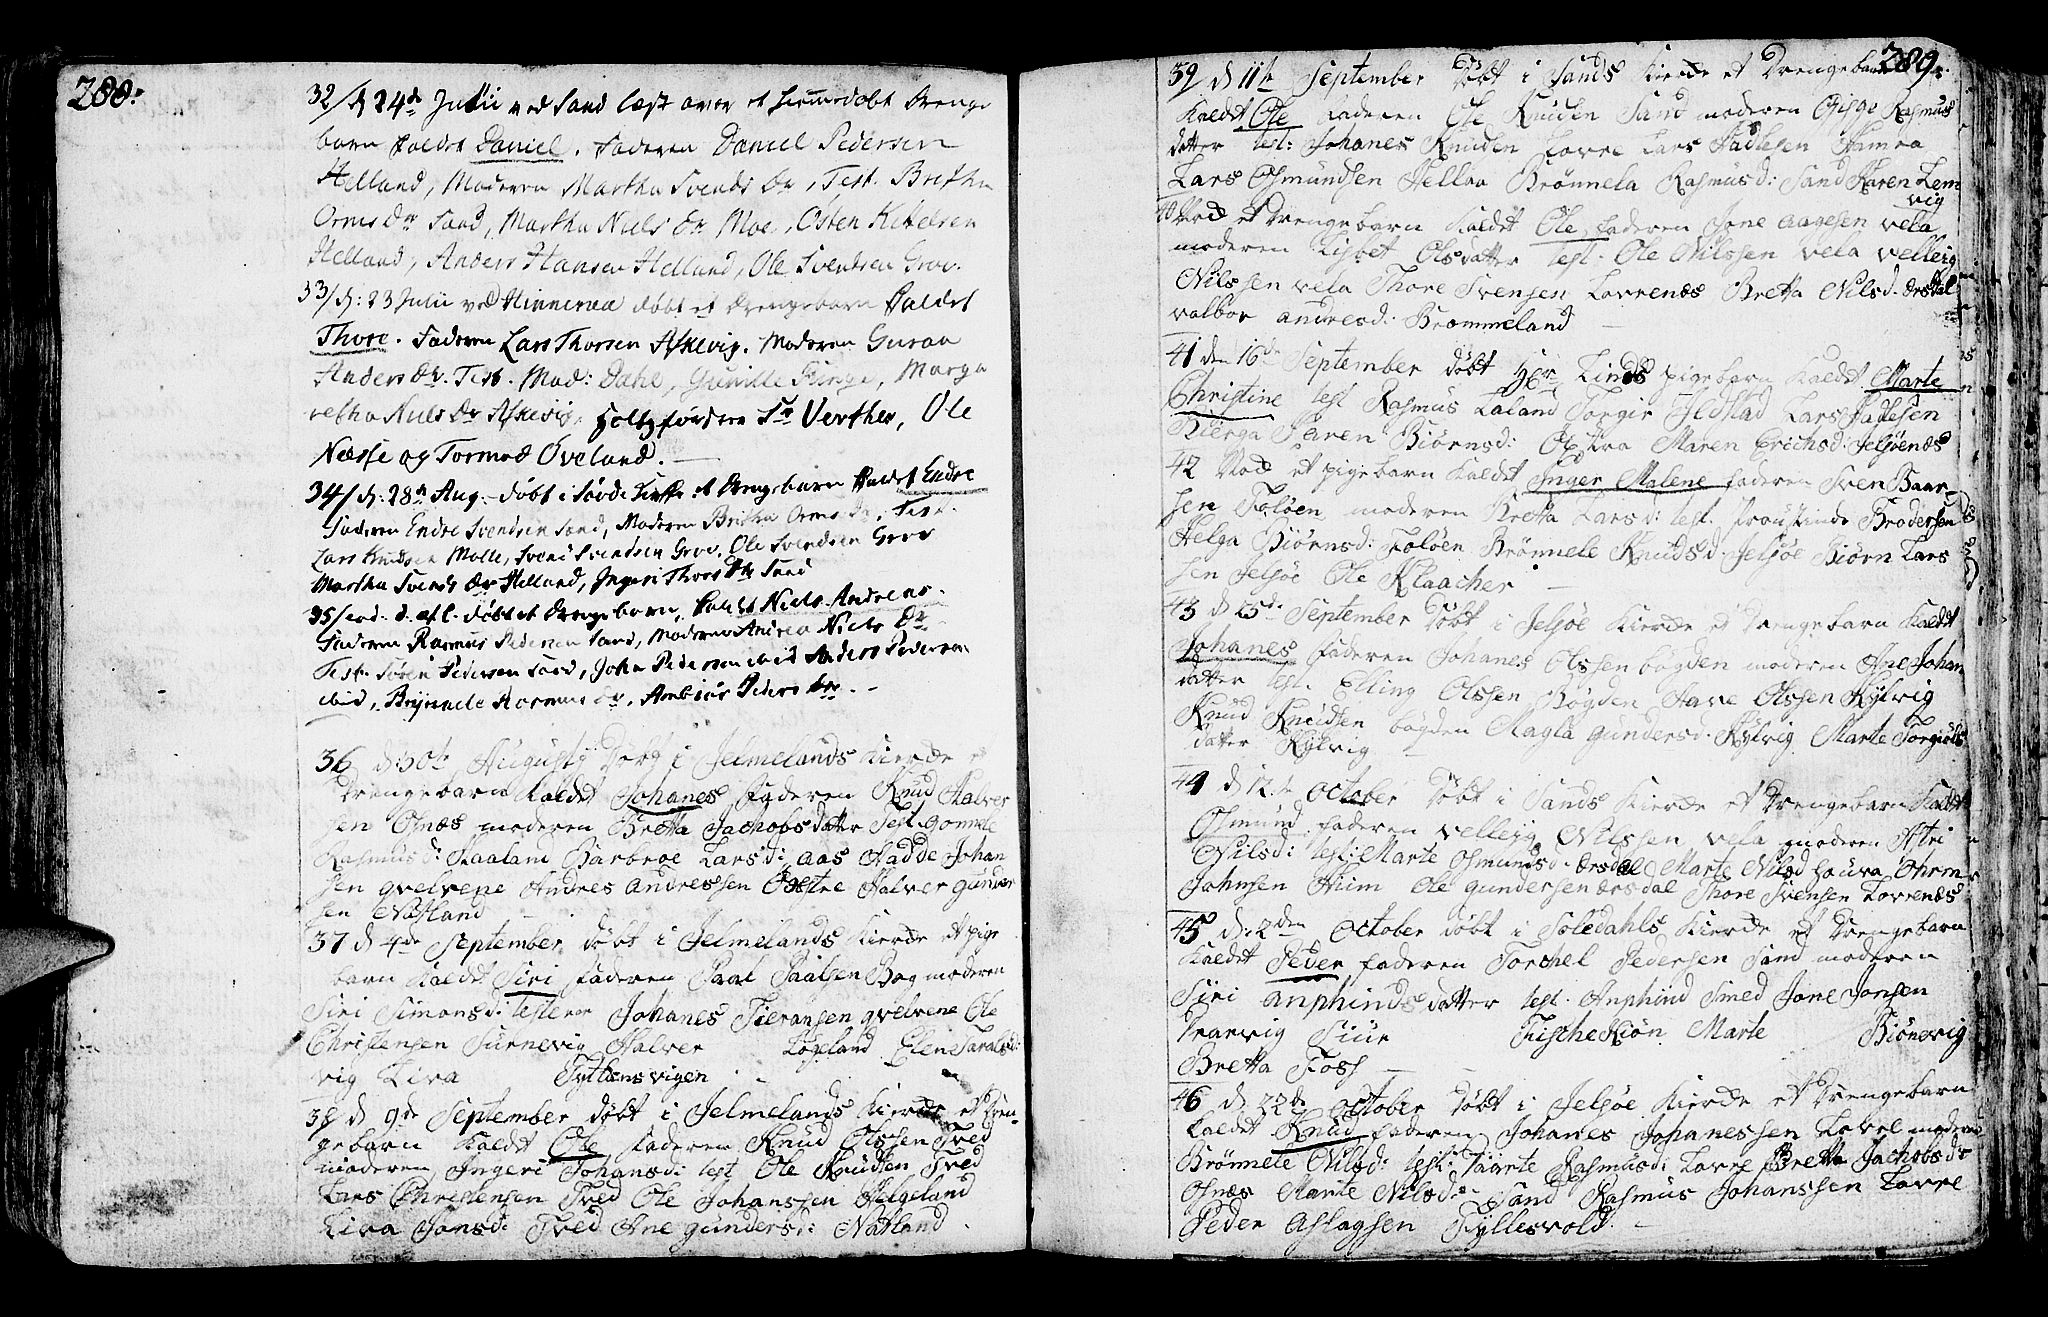 288.
32/ d 24de Julii ved Sand læst over et hiemmedøbt Drenge
barn kaldet Daniel. Faderen Daniel Pedersen
Helland, Moderen Martha Svends Dr, Test. Bretha
Orms Dr Sand, Martha Niels Dr Moe, Østen Ketelsen
Helland, Anders Hansen Helland, Ole Svendsen Grov.
33/ d: 23 Julii ved Hinneraa døbt et Drengebarn kaldet
Thore. Faderen Lars Thorsen Askevig. Moderen Guroa
Anders Dr. Test. Mad: Dahl, Gunille Funge, Marga
retha Niels Dr Askevig, Holtzførster Sr Verther, Ole
Næsse og Tormod Øveland.
34/ d: 28de Aug. døbt i Søvde Kirke et Drengebarn kaldet Endre
Faderen Endre Svendsen Sand, Moderen Britha Orms Dr, Test.
Lars Knudsen Molle, Svend Svendsen Grov, Ole Svendsen Grov
Martha Svends Dr Helland, Ingeri Thors Dtr Sand
35/ eod. d. et l. døbt et Drengebarn, kaldt Niels Andreas.
Faderen Rasmus Pedersen Sand, Moderen Andrea Niels Dr
Test. Søren Pedersen Sand, John Pedersen ibid Anders Pedersen
ibid, Brynnele Rasmus Dr, Ambiør Peders Dr.
36 d: 30te Augusty Døbt i Jelmelands Kierche et
Drengebarn Kaldet Johanes faderen Knud Halver
sen Osnæs moderen Bretta Jachobsdatter Test. gonnele
Rasmusd: Haaland Barbroe Larsd: aas Hadde Johan
sen qvelvene Andres andressen Østre Halver gunder
sen Nøsland
37 d 4de September døbt i Jelmelands Kierche et pige
barn Kaldet Siri faderen Paal Paalsen Bag moderen
Siri Simonsd: testerer Johanes Fieransen qvelvene Ole
Christensen Surnevig Halver Løgeland Elen Taralsd:
vig Liva Tyttensvigen
38 d 9de September døbt i Jelmelands Kierche et Dren-
gebarn Kaldet Ole Faderen Knud Olssen Tved
moderen Ingeri Johansd: test Ole Knudsen Tved
Lars Christensen Tved Ole Johanssen Helgeland
Liva Jonsd: Tved Ane gundersd: Nøsland
289.
39 d 11te September døbt i Sands Kierche et Drengebarn
Kaldet Ole faderen Ole Knuden Sand moderen Gisge Rasmus
datter test: Johanes Knuden Lovre Lars Hadlesen Hamra
Lars Osmundsen Hellaa Brønnela Rasmusd: Sand Karen Lem
vig
40 Nock et Drengebarn Kaldet Ole faderen Jone aagesen vela
moderen Lisbet Olsdatter test: Ole Nilssen vela velleig
Nilssen vela Thore Svensen Lovrenæs Bretta Nilsd. Ørsdal
valbor andresd: Brommeland
41 den 16de September døbt Hr Linds pigebarn Kaldet Marte
Christine test Rasmus Laland Torgir Ildstad Lars Hadlesen
Kierga Karen Biørnsd: Maren Erichsd: Jelsøenæs
42 Nock et pigebarn Kaldet Inger Malene faderen Sven Baar
sen Foløen moderen Bretta Larsd: test. Proustinde Brodersen
Helga Biørnsd: Foløen Brønnele Knudsd Jelsøe Biørn Lars
sen Jelsøe Ole Klaacher
43 d 25de September døbt i Jelsøe Kierche et Drengebarn Kaldet
Johanes faderen Johanes Olssen bøgden moderen Ane Johan
datter test. Elling Olssen Bøgden Aave Olssen Kylvig
Knud Knudsen bøgden Magla gundersd. Kylvig Marte Torgiuls
datter Kylvig
44 d 12.te October døbt i Sands Kierche et Drengebarn Kaldet
Osmund faderen velleig Nilssen vela moderen Atri
Nilsd: test: Marte Osmundsd. Ørsdal Marte Nilsd Houra Ohrm
Johnsen Hiim Ole gundersen Ørsdal Thore Svensen Lovrenæs
45 d: 2den October døbt i Soledahls Kierche et Drengebarn
Kaldet Peder faderen Torchel Pedersen Sand moderen
Siri anphindsdatter test. Anphind Smed Jone Jonsen
Prarvig Siur Fische Kiøn Marte Biønevig
Bretta Foss
46 d 22de October døbt i Jelsøe Kierche et Drengebarn
Kaldet Knud faderen Johanes Johanessen Lovre moderen
Brønnele Nilsd: test: Taarte Rasmusd: Lovre Bretta Jachobsdr
Osnæs Marite Nilsdr Sand Rasmus Johanssen Lovre
Peder Aslagsen Fyllesvold